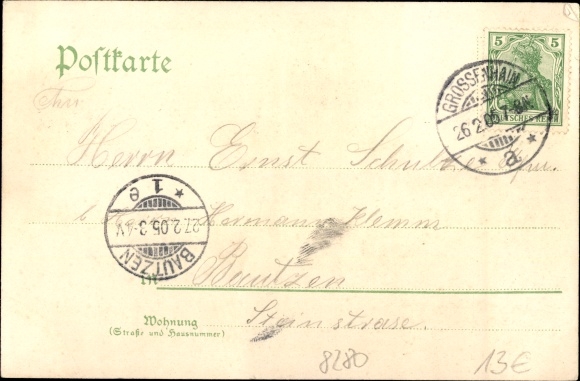 Postkarte
5 5
DEUTSCHES REICH
GROSSENHAIN
26.2.05. 7-8N.
* a *
Herrn Ernst Schulze
Hermann Klemm
* 1 e
27.2.05.3-4V.
BAUTZEN
Bautzen
Wohnung
(Straße und Hausnummer)
Steinstrase.
8280
13€